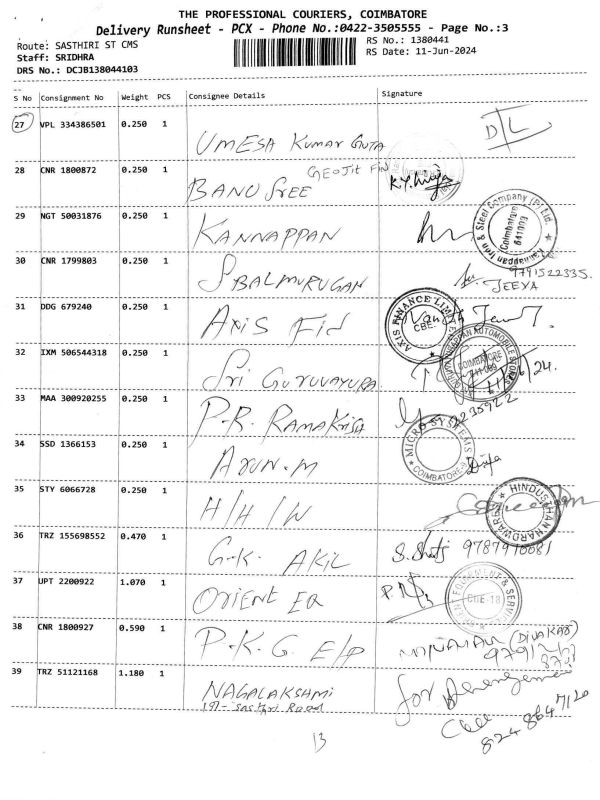 THE PROFESSIONAL COURIERS, COIMBATORE
Delivery Runsheet - PCX - Phone No.:0422-3505555 - Page No.:3
Route: SASTHIRI ST CMS
RS No.: 1380441
Staff: SRIDHRA
RS Date: 11-Jun-2024
DRS No.: DCJB138044103
S No Consignment No Weight PCS Consignee Details Signature
27 VPL 334386501 0.250 1 UMESA KUMAR GUTA DL
28 CNR 1800872 0.250 1 BANU SREE GEOJIT FIN
29 NGT 50031876 0.250 1 KANNAPPAN
Kannappan Iron & Steel Company (P) Ltd. Coimbatore 641003
30 CNR 1799803 0.250 1 S BALMURUGAN 9791522335. JEEVA
31 DDG 679240 0.250 1 AXIS FIN
AXIS FINANCE LIMITED CBE-
32 IXM 506544318 0.250 1 SRI GURUVAYURA
AUTOMOBILE STORES COIMBATORE
33 MAA 300920255 0.250 1 P.R. RAMAKRISA
34 SSD 1366153 0.250 1 ARUN.M
MICRO SYSTEMS COIMBATORE
35 STY 6066728 0.250 1 H/H/W
HINDUSTHAN HARDWARES
36 TRZ 155698552 0.470 1 G.K. AKIL
37 UPT 2200922 1.070 1 ORIENT EQ
EQUIPMENT & SERVICE CBE-18
38 CNR 1800927 0.590 1 P.K.G. E/P (DIVAKAR)
39 TRZ 51121168 1.180 1 NAGALAKSHMI
197- Sasthri Road
for
824 864 7120
13